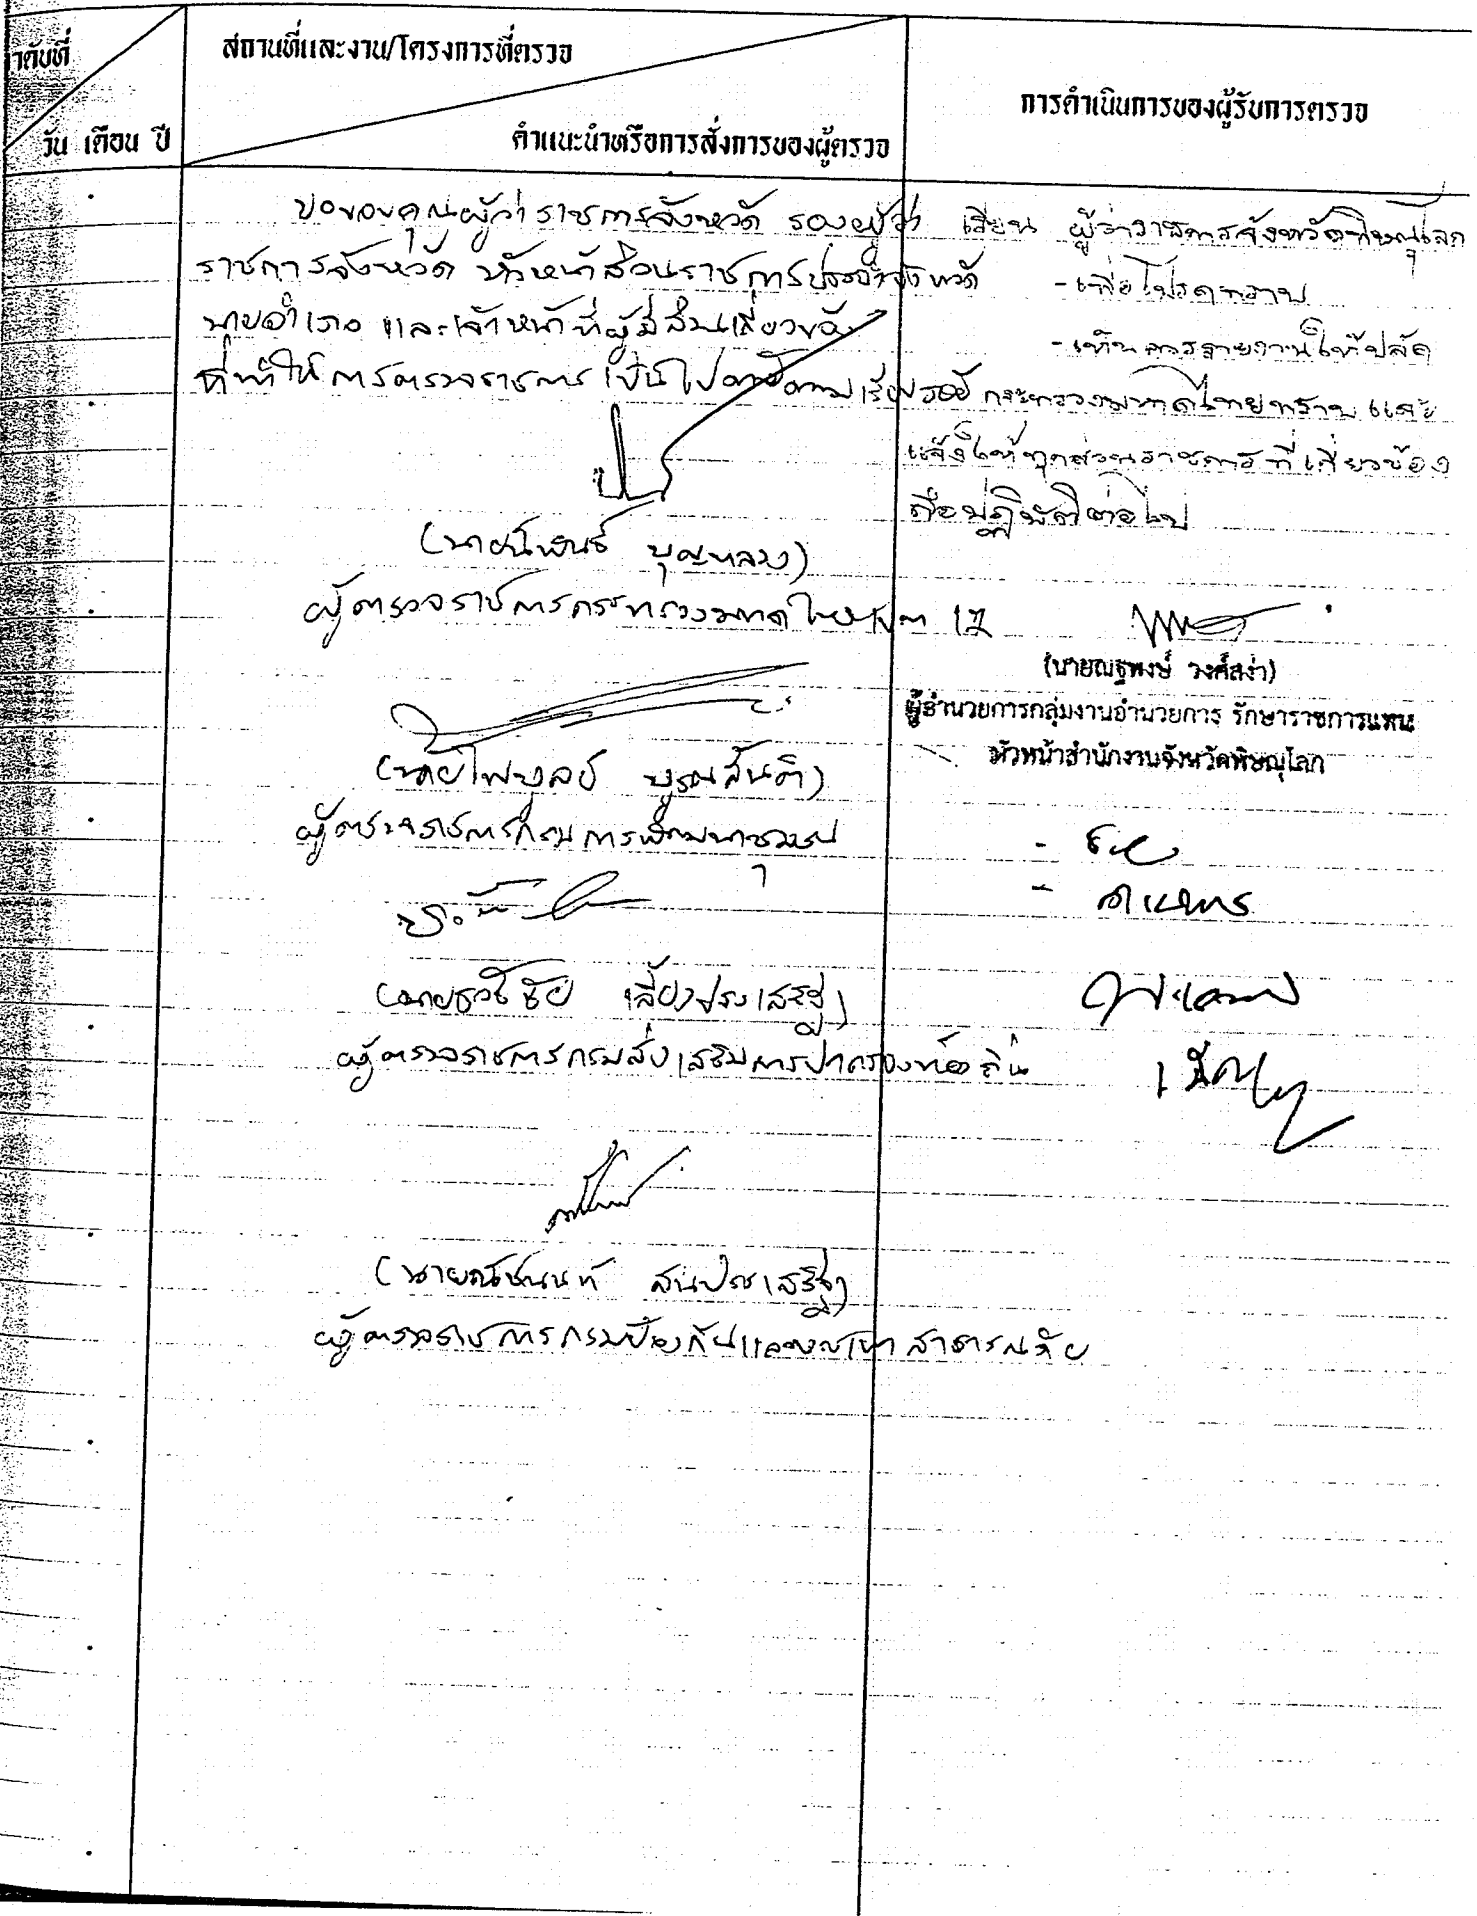 ลำดับที่
วัน เดือน ปี
สถานที่และงาน/โครงการที่ตรวจ
คำแนะนำหรือการสั่งการของผู้ตรวจ
การดำเนินการของผู้รับการตรวจ
ขอขอบคุณผู้ว่าราชการจังหวัด รองผู้ว่า
ราชการจังหวัด หัวหน้าส่วนราชการประจำจังหวัด
นายอำเภอ และเจ้าหน้าที่ผู้มีส่วนเกี่ยวข้อง
ที่ทำให้การตรวจราชการเป็นไปด้วยความเรียบร้อย
(นายนิพันธ์ บุญหลวง)
ผู้ตรวจราชการกระทรวงมหาดไทย เขต 17
(นายไพบูลย์ บูรณสันติ)
ผู้ตรวจราชการกรมการพัฒนาชุมชน
(นายธวัชชัย เลี้ยงประเสริฐ)
ผู้ตรวจราชการกรมส่งเสริมการปกครองท้องถิ่น
(นาย สนประเสริฐ)
ผู้ตรวจราชการกรมป้องกันและบรรเทาสาธารณภัย
เรียน ผู้ว่าราชการจังหวัดพิษณุโลก
- เพื่อโปรดทราบ
- เห็นควรรายงานให้ปลัด
กระทรวงมหาดไทยทราบ และ
แจ้งให้ทุกส่วนราชการที่เกี่ยวข้อง
ถือปฏิบัติต่อไป
(นายณฐพงษ์ วงศ์สง่า)
ผู้อำนวยการกลุ่มงานอำนวยการ รักษาราชการแทน
หัวหน้าสำนักงานจังหวัดพิษณุโลก